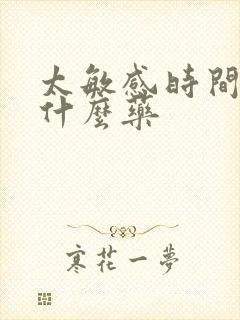 太敏感時間
什麼藥
寒花一夢